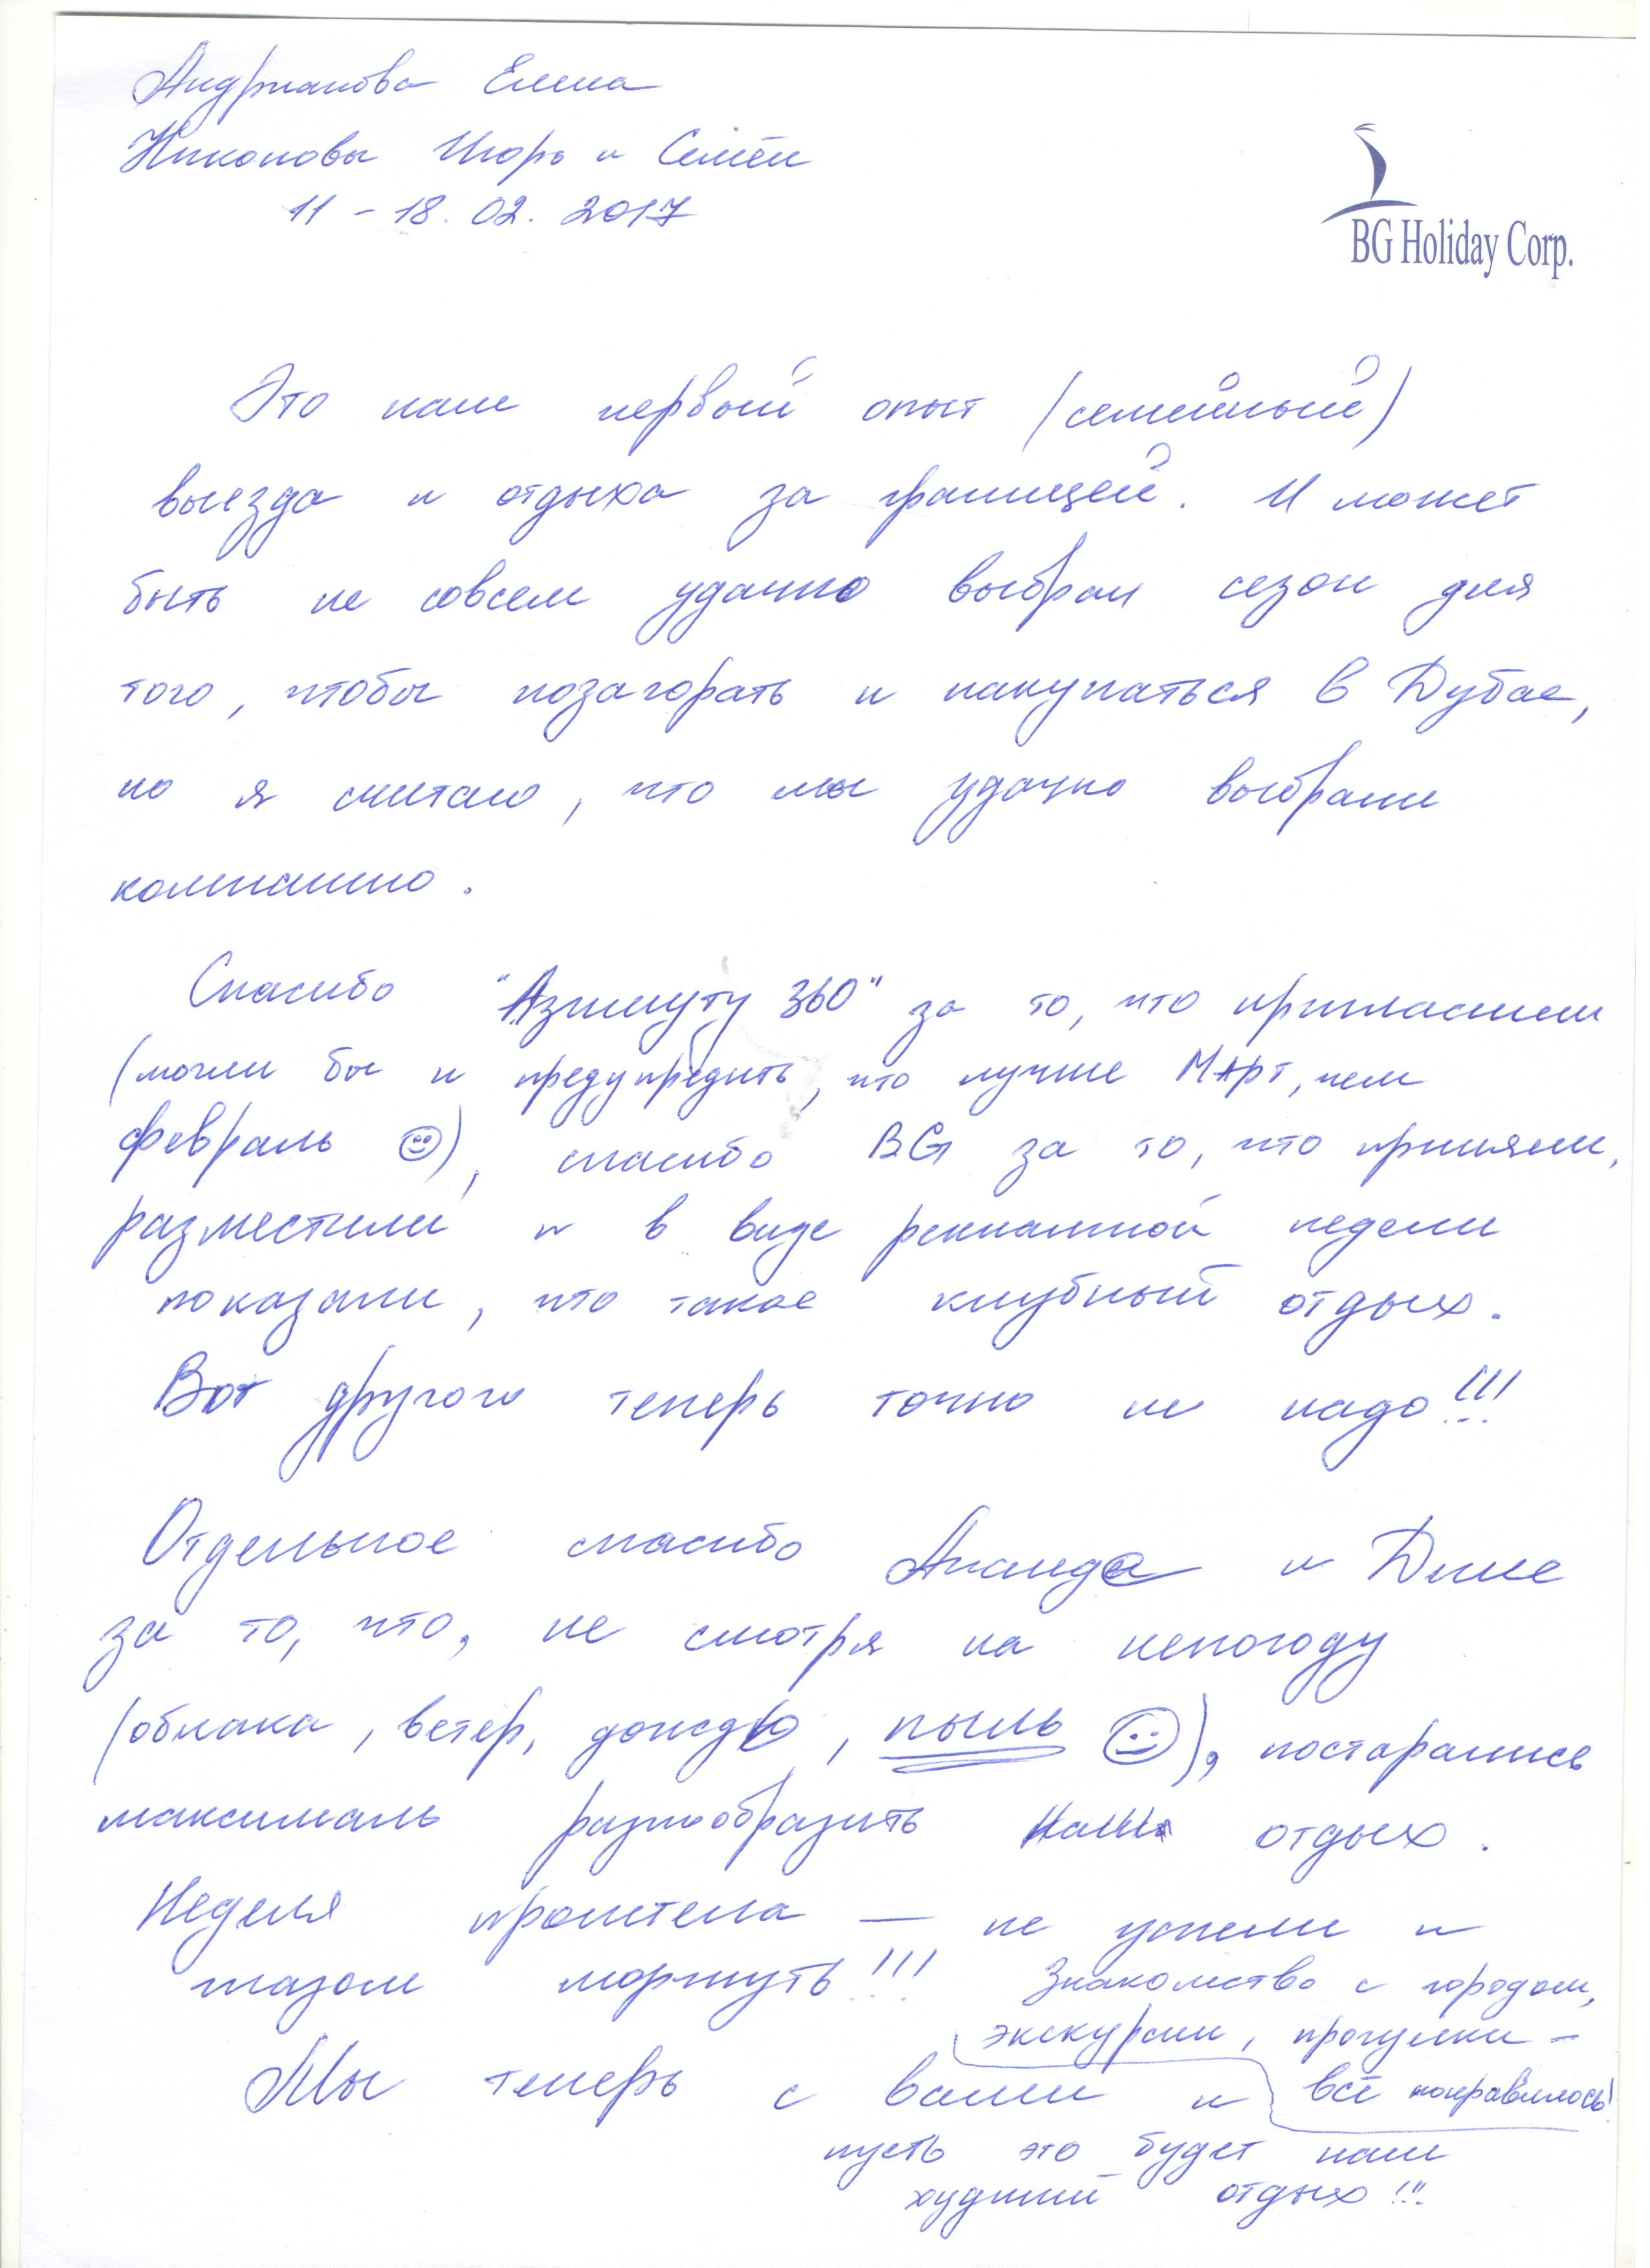 Андрианова Елена
Никоновы Игорь и Семён
11 - 18. 02. 2017
BG Holiday Corp.
Это наш первый опыт (семейный)
выезда и отдыха за границей. И может
быть не совсем удачно выбран сезон для
того, чтобы позагорать и накупаться в Дубае,
но я считаю, что мы удачно выбрали
компанию.
Спасибо "Азимуту 360" за то, что пригласили
(могли бы и предупредить, что лучше Март, чем
февраль ☺), спасибо BG за то, что приняли,
разместили и в виде рекламной недели
показали, что такое клубный отдых.
Вот другого теперь точно не надо!!!
Отдельное спасибо Ананда и Дине
за то, что, не смотря на непогоду
(облака, ветер, дождь, пыль ☺), постарались
максималь разнообразить наш отдых.
Неделя пролетела — не успели и
глазом моргнуть!!! Знакомство с городом,
экскурсии, прогулки -
всё понравилось!
Мы теперь с вами и
пусть это будет наш
худший отдых!!!